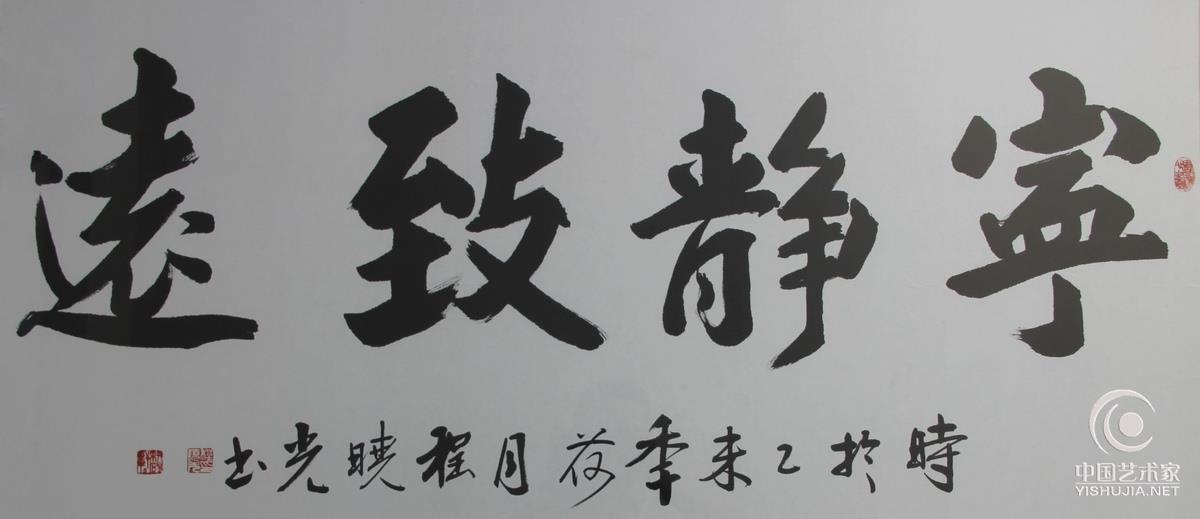 寧靜致遠
時於乙未季荷月程曉光书
中国艺术家
YISHUJIA.NET